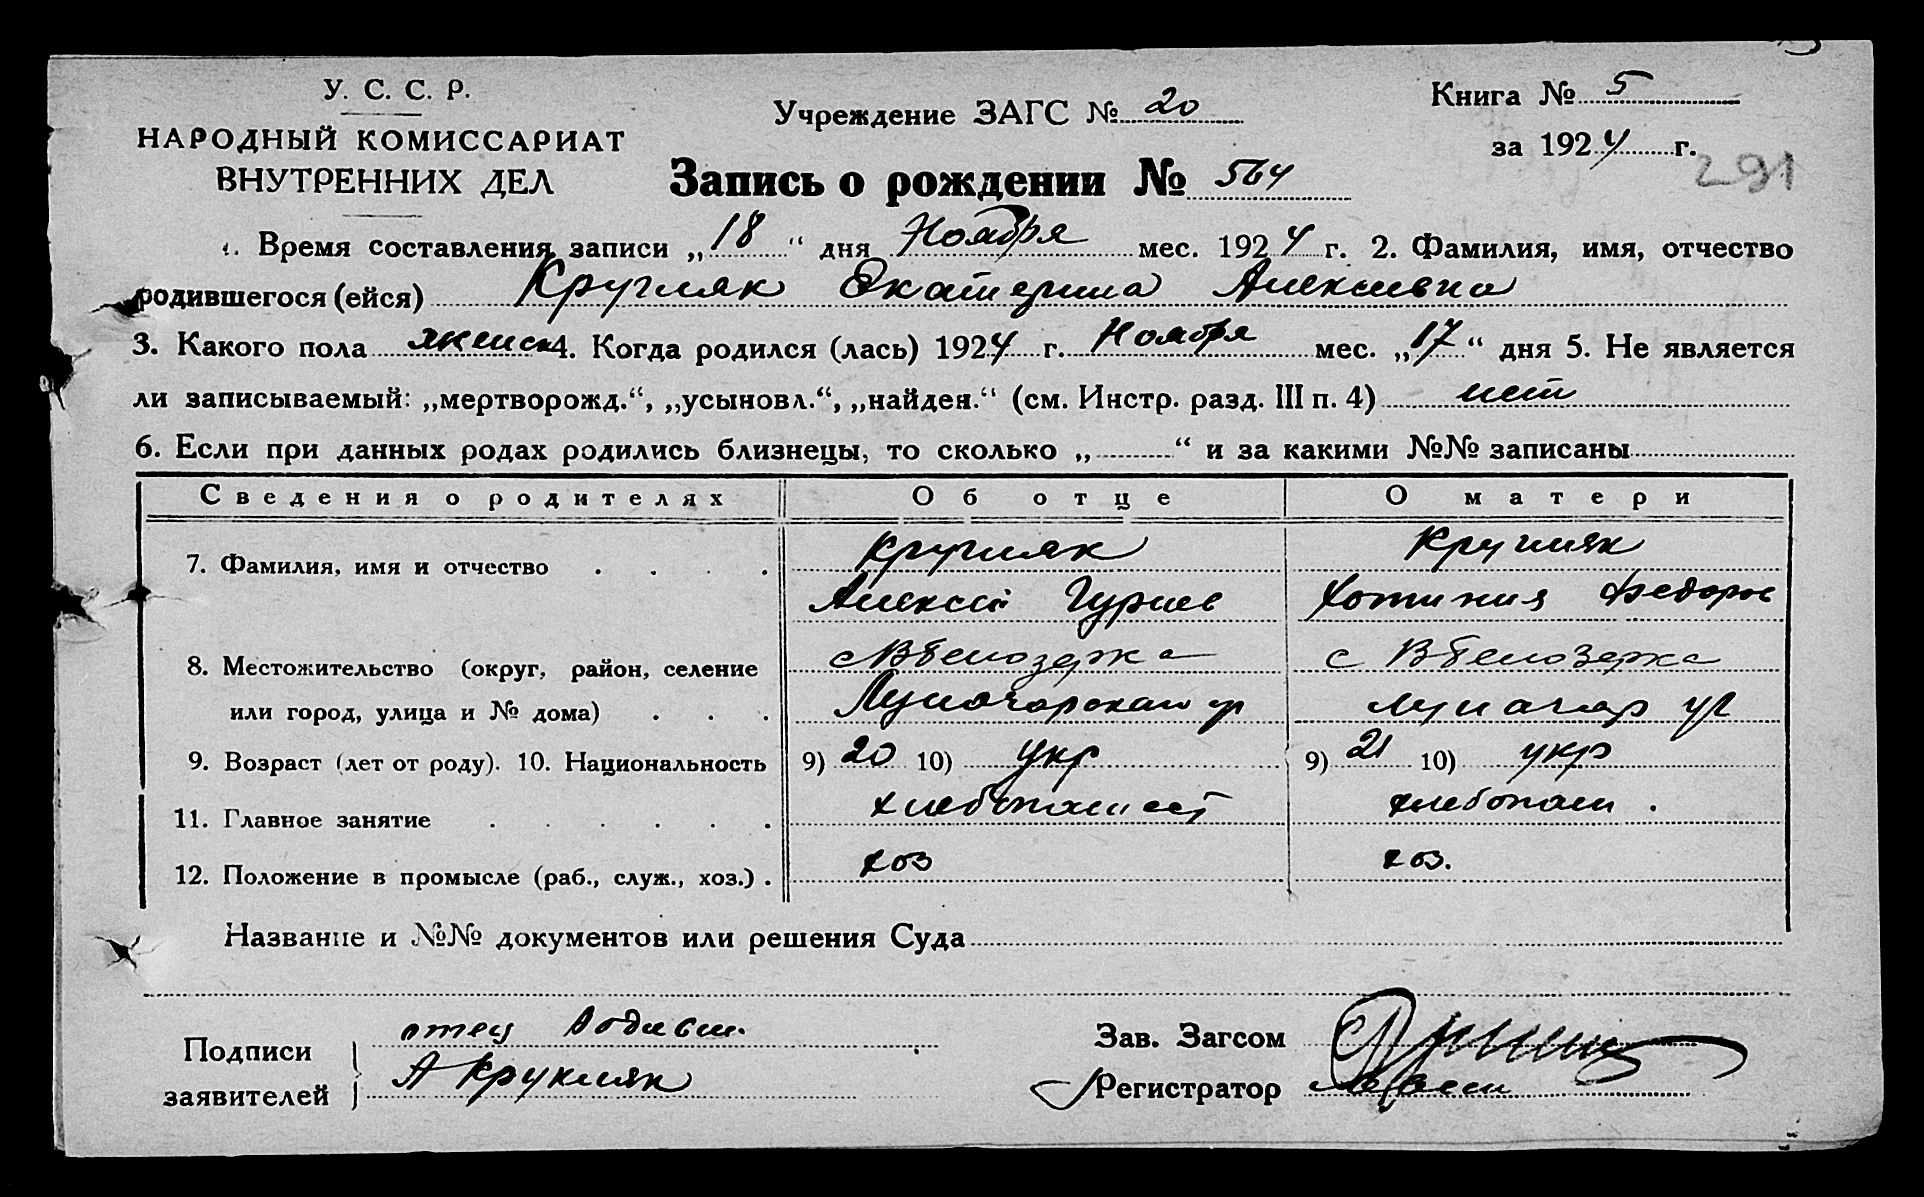 У. С. С. Р.
НАРОДНЫЙ КОМИССАРИАТ
ВНУТРЕННИХ ДЕЛ
Учреждение ЗАГС № 20
Книга № 5
за 1924 г.
291
Запись о рождении № 564
1. Время составления записи „18“ дня Ноября мес. 1924 г. 2. Фамилия, имя, отчество
родившегося (ейся) Кругляк Екатерина Алексеевна
3. Какого пола женск 4. Когда родился (лась) 1924 г. Ноября мес. „17“ дня 5. Не является
ли записываемый: „мертворожд.“, „усыновл.“, „найден.“ (см. Инстр. разд. III п. 4) нет
6. Если при данных родах родились близнецы, то сколько „ “ и за какими №№ записаны
Сведения о родителях Об отце О матери
7. Фамилия, имя и отчество Кругляк Кругляк
Алексей Гуриев Хотиния Федоров
8. Местожительство (округ, район, селение с В Белозерка с В Белозерка
или город, улица и № дома) Луначарская ул Луначар ул
9. Возраст (лет от роду). 10. Национальность 9) 20 10) укр 9) 21 10) укр
11. Главное занятие хлебопашест хлебопаш.
12. Положение в промысле (раб., служ., хоз.) хоз хоз.
Название и №№ документов или решения Суда
Подписи
заявителей
отец
А Крукляк
Зав. Загсом
Регистратор